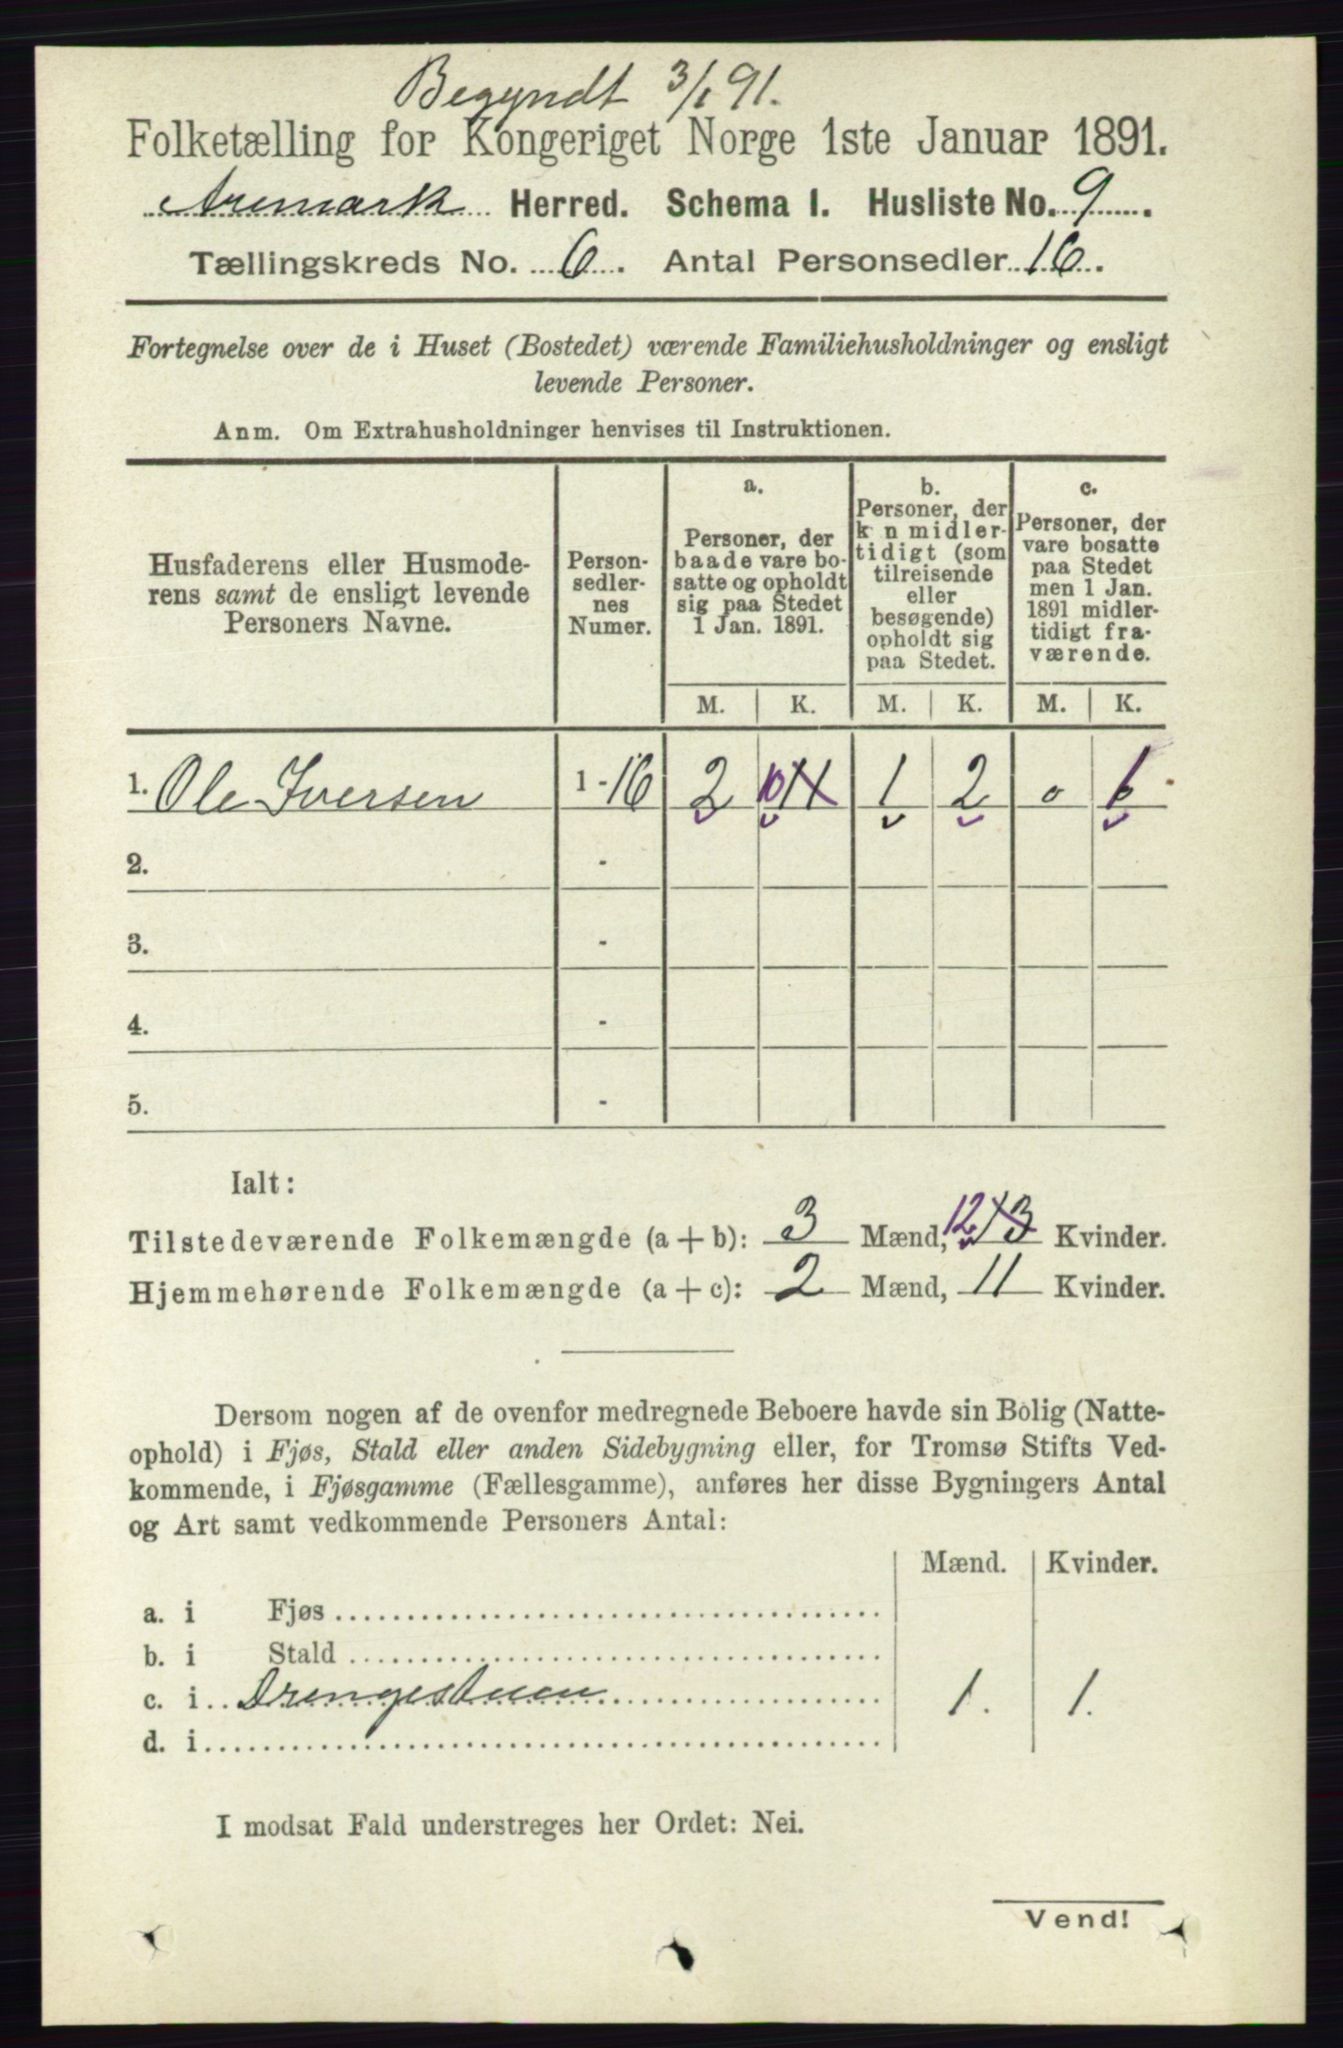 Begyndt 3/1 91.
Folketælling for Kongeriget Norge 1ste Januar 1891.
Aremark Herred. Schema I. Husliste No. 9.
Tællingskreds No. 6. Antal Personsedler 16.
Fortegnelse over de i Huset (Bostedet) værende Familiehusholdninger og ensligt
levende Personer.
Anm. Om Extrahusholdninger henvises til Instruktionen.
Husfaderens eller Husmode-
rens samt de ensligt levende
Personers Navne.
Person-
sedler-
nes
Numer.
a.
Personer, der
baade vare bo-
satte og opholdt
sig paa Stedet
1 Jan. 1891.
b.
Personer, der
k n midler-
tidigt (som
tilreisende
eller
besøgende)
opholdt sig
paa Stedet.
c.
Personer, der
vare bosatte
paa Stedet
men 1 Jan.
1891 midler-
tidigt fra-
værende.
M. K. M. K. M. K.
1. Ole Iversen 1 - 16 2 10 11 1 2 0 1
2. -
3. -
4. -
5. -
Ialt:
Tilstedeværende Folkemængde (a + b): 3 Mænd, 12 13 Kvinder.
Hjemmehørende Folkemængde (a + c): 2 Mænd, 11 Kvinder.
Dersom nogen af de ovenfor medregnede Beboere havde sin Bolig (Natte-
ophold) i Fjøs, Stald eller anden Sidebygning eller, for Tromsø Stifts Ved-
kommende, i Fjøsgamme (Fællesgamme), anføres her disse Bygningers Antal
og Art samt vedkommende Personers Antal:
Mænd. Kvinder.
a. i Fjøs
b. i Stald
c. i Drengestuen 1. 1.
d. i
I modsat Fald understreges her Ordet: Nei.
Vend!